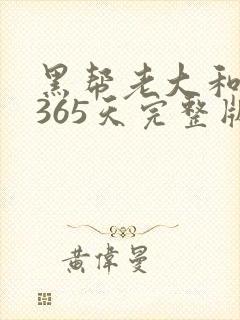 黑帮老大和
365天完整版
黄偉曼